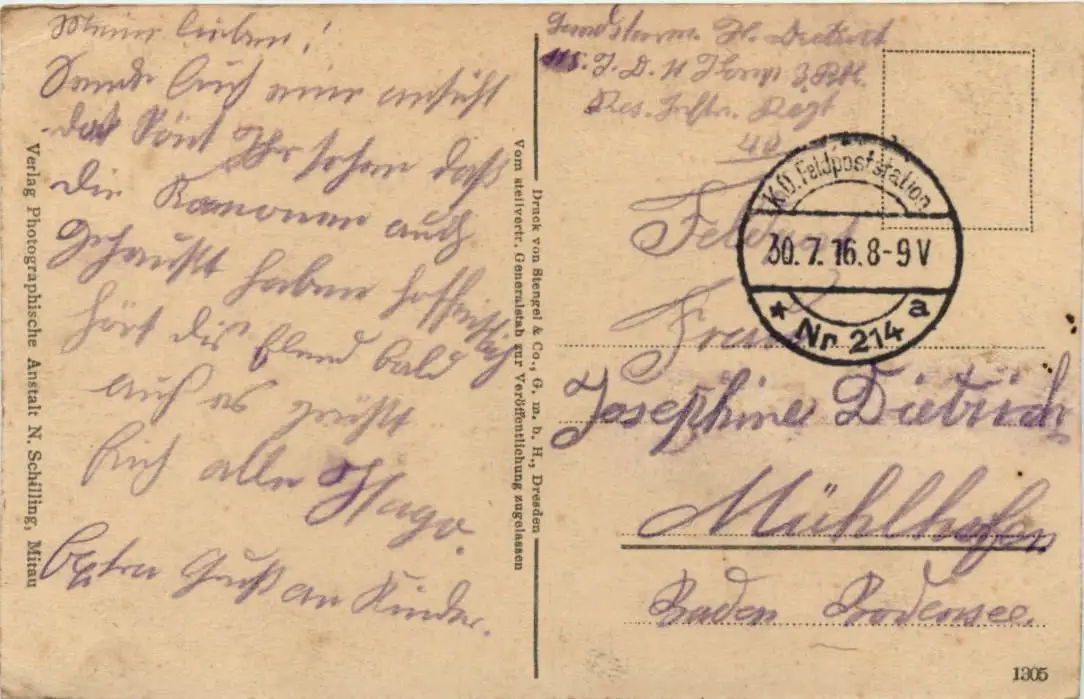 Meine lieben!
Sende Euch eine ansicht
das Könt Ihr sehen daß
die Kanonen auch
gehaußt haben hoffentlich
hört dis Elend bald
auch es grüßt
Euch alle Hugo.
Extra Gruß an Kinder.
Verlag Photographische Anstalt N. Schilling, Mitau
Druck von Stengel & Co., G. m. b. H., Dresden
Vom stellvertr. Generalstab zur Veröffentlichung zugelassen
Landsturm. H. Dietrich
I. D. 11 Komp.
Res. Inftr. Regt
Feldpost
K.D. Feldpoststation
30.7.16.8-9V
* Nr 214 a
Frau
Josephine Dietrich
Mühlhofen
Baden Bodensee.
1305